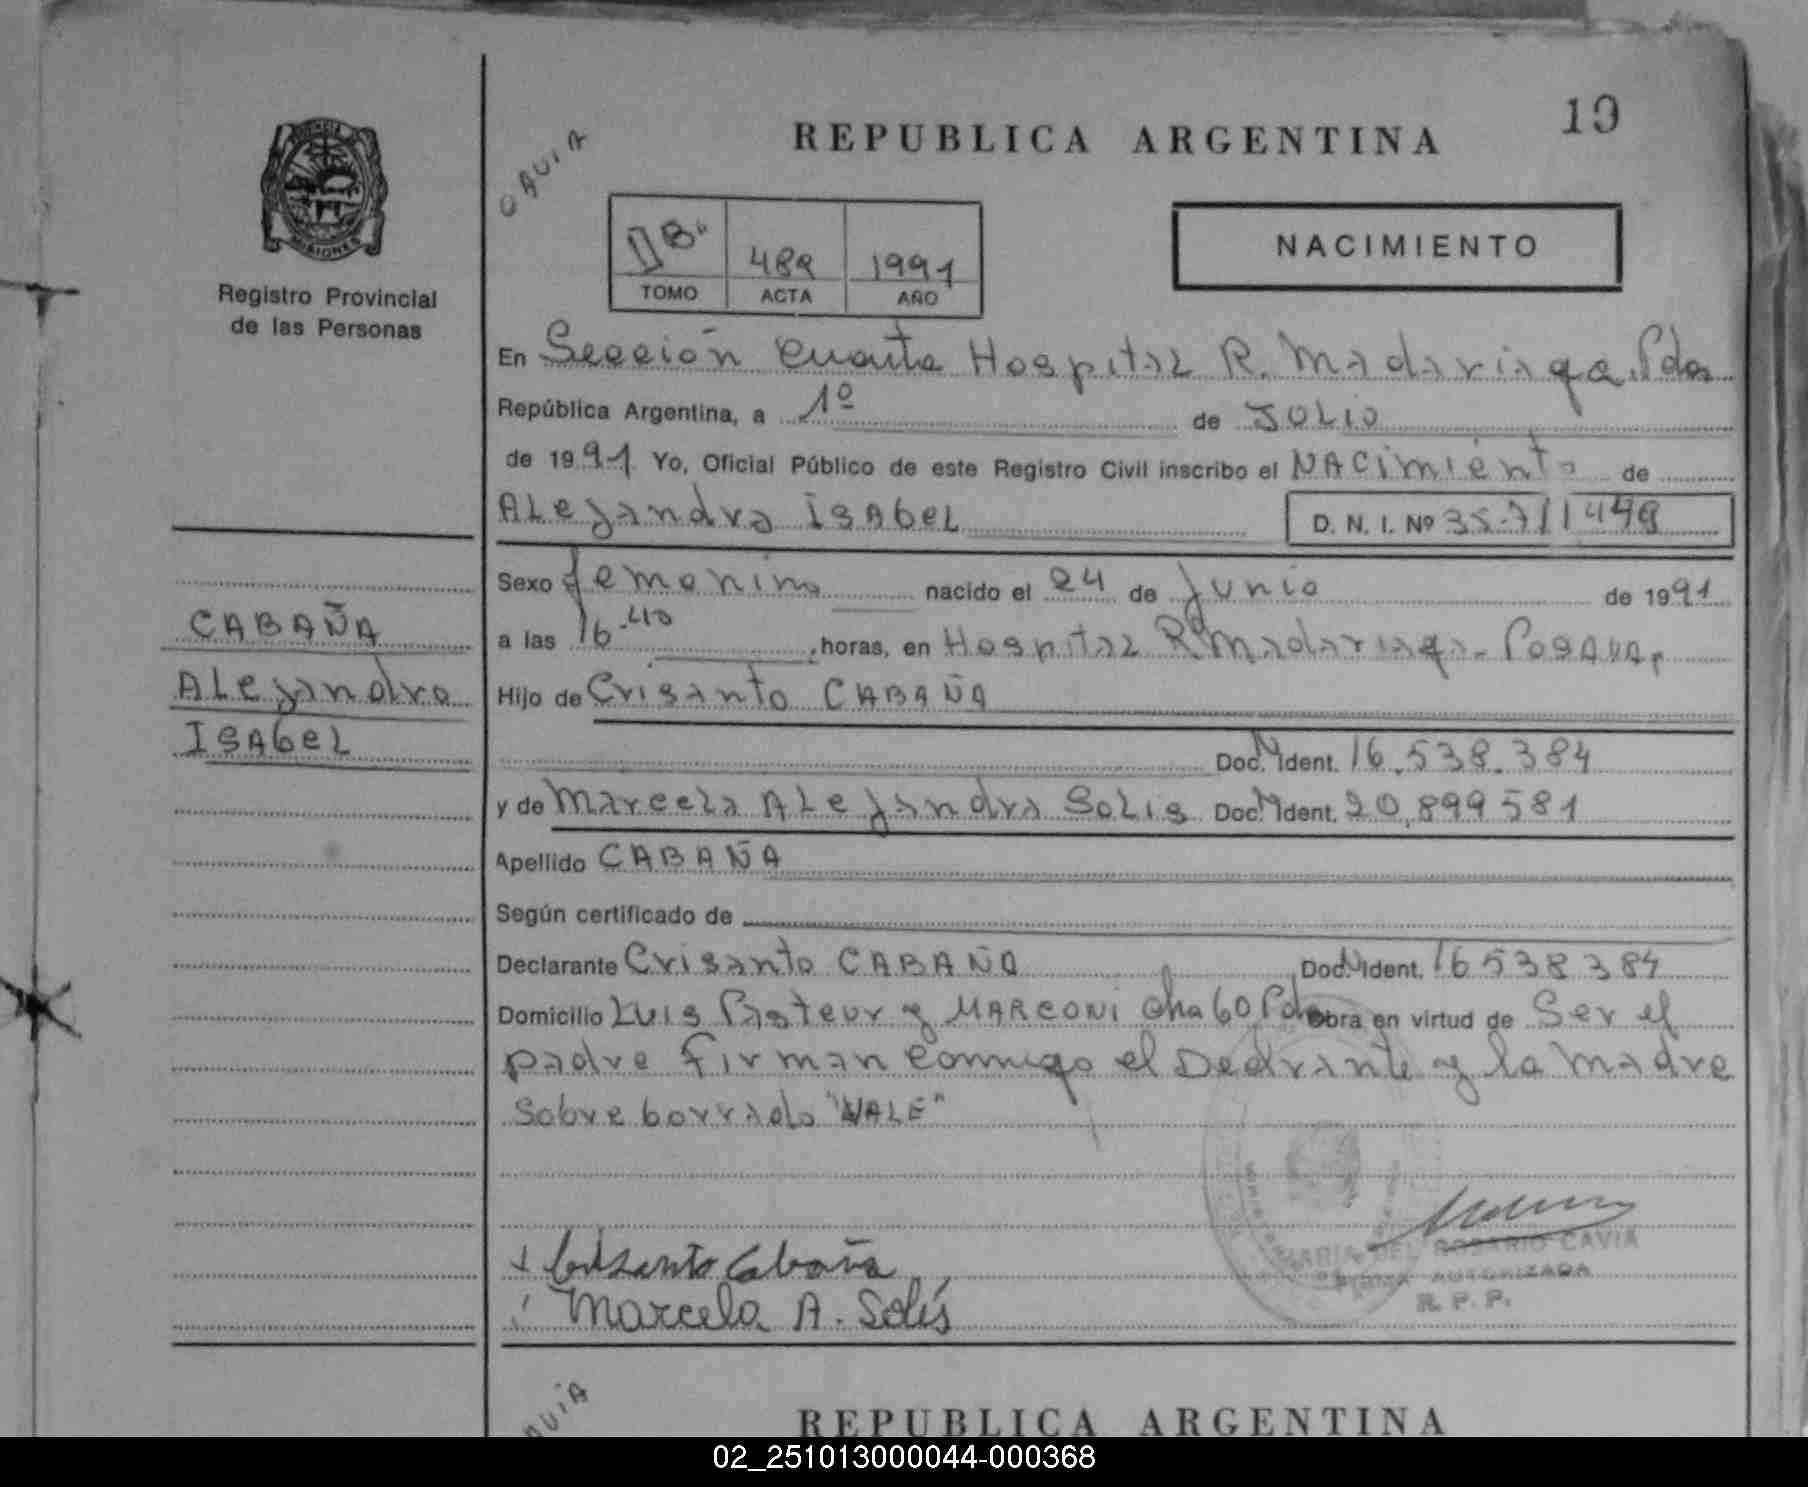 19
REPUBLICA ARGENTINA
MISIONES
Registro Provincial
de las Personas
1991
TOMO ACTA AÑO
NACIMIENTO
En Sección Cuarta Hospital R. Madariaga. Pdas
República Argentina, a 1º de JULIO
de 1991 Yo, Oficial Público de este Registro Civil inscribo el NACimiento de
ALejandra ISABEL D. N. I. Nº
Sexo femenino nacido el 24 de junio de 1991
a las 16-40 horas, en Hospital R. Madariaga - POSADAS
Hijo de Crisanto CABAÑA
Doc. N Ident. 16.538.384
y de Marcela ALejandra SOLIS Doc. N Ident. 20.899581
Apellido CABAÑA
Según certificado de
Declarante Crisanto CABAÑA Doc. N Ident. 16538384
Domicilio LUIS Pasteur y MARCONI cha 60 Pdas Obra en virtud de Ser el
padre firman conmigo el y la madre
sobre borrado "VALE"
CABAÑA
ALejandra
ISAbeL
Crisanto Cabaña
Marcela A. Solís
MARIA DEL ROSARIO CAVIA
FIRMA AUTORIZADA
R. P. P.
REPUBLICA ARGENTINA
02_251013000044-000368